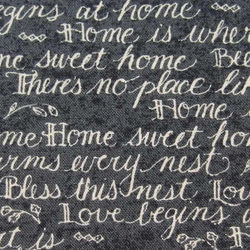 egins at home
Home is wher
me sweet home Ble
There's no place lik
Home
me Home sweet hom
arms every nest
Bless this nest Lov
Love begins a
at is